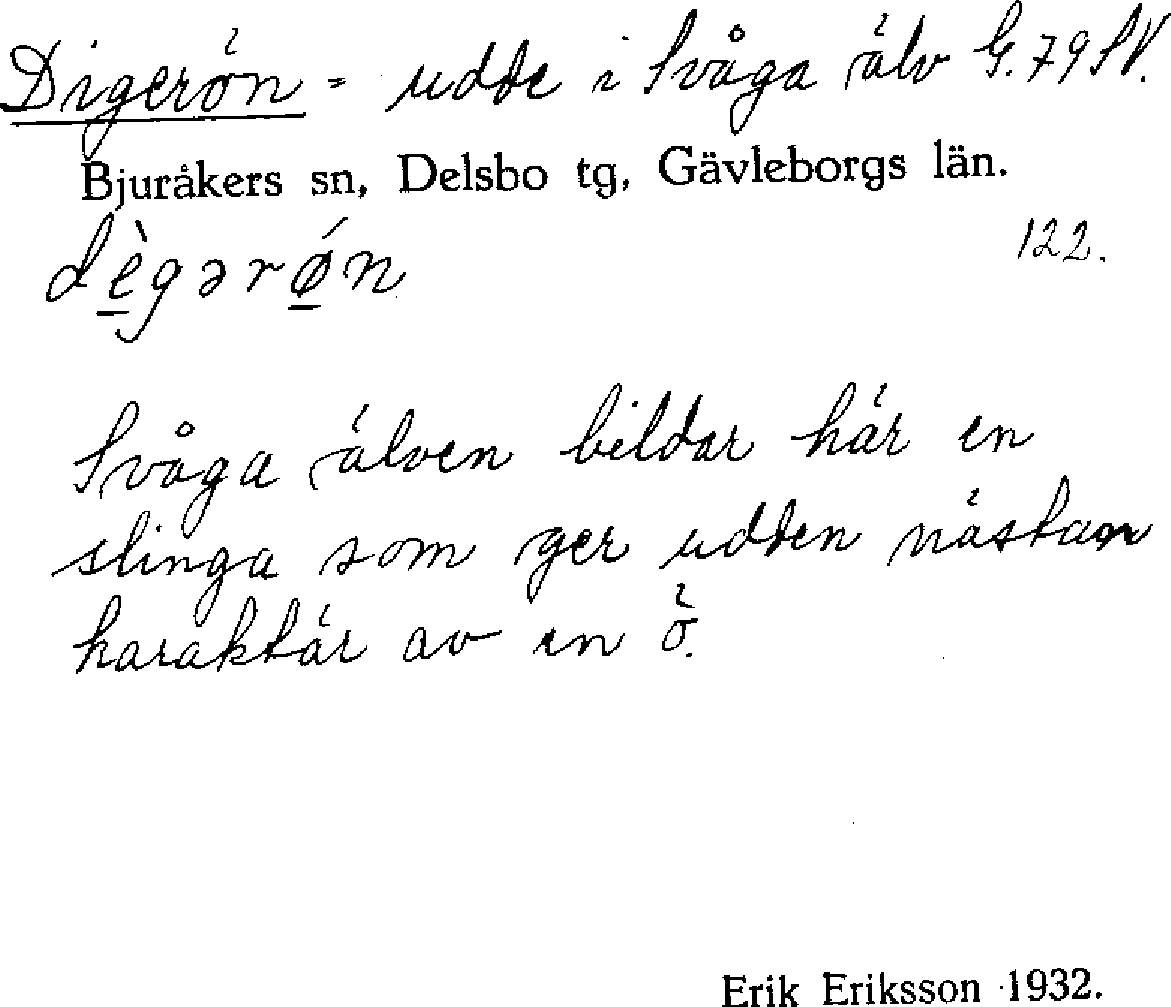 Digerön = udde i Svåga älv G.79 SV.
Bjuråkers sn, Delsbo tg, Gävleborgs län.
dègərǿn 122.
Svåga älven bildar här en
slinga som ger udden nästan
karaktär av en ö.
Erik Eriksson 1932.